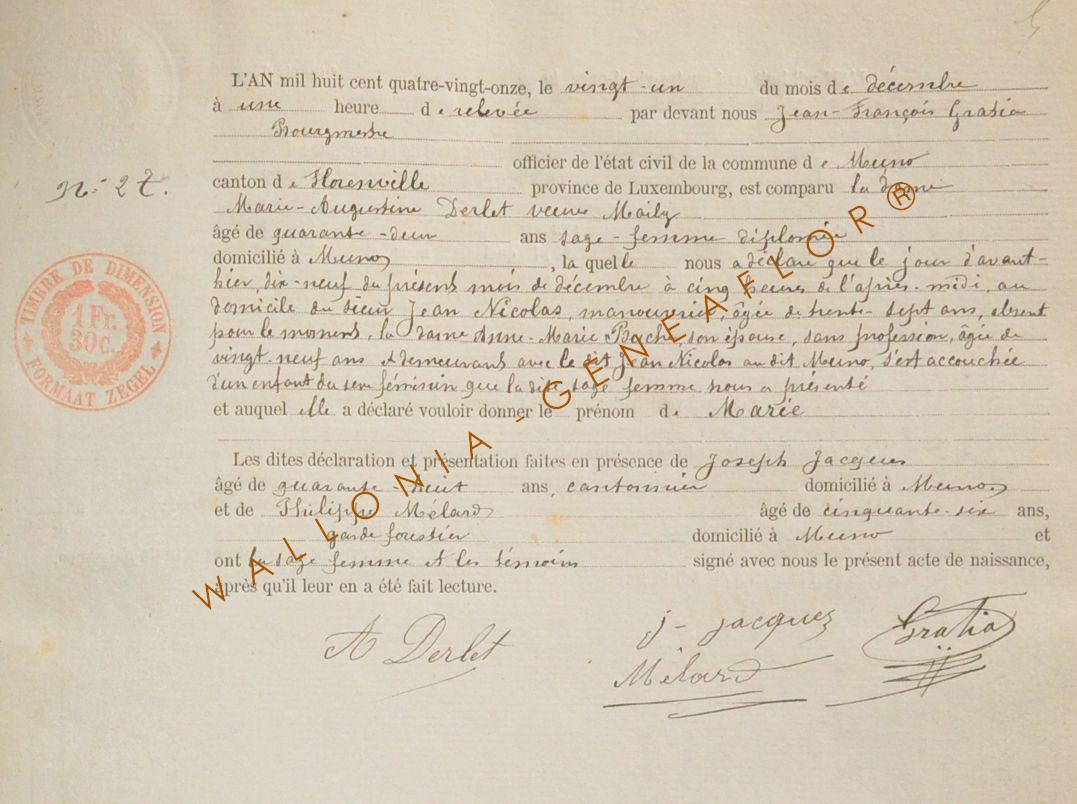 L'AN mil huit cent quatre-vingt-onze, le vingt-un du mois de décembre
à une heure de relevée par devant nous Jean-François Gratia
Bourgmestre
officier de l'état civil de la commune de Muno
N° 27.
canton de Florenville province de Luxembourg, est comparu la dame
Marie-Augustine Derlet veuve Maily
âgé de quarante-deux ans sage-femme diplomée
domicilié à Muno, la quelle nous a déclaré que le jour d'avant-
hier, dix-neuf du présent mois de décembre à cinq heures de l'après-midi, au
domicile du sieur Jean Nicolas, manouvrier, âgée de trente-sept ans, absent
pour le moment, la dame Anne-Marie Poche son épouse, sans profession, âgée de
vingt-neuf ans et demeurant avec le dit Jean Nicolas au dit Muno, s'est accouchée
d'un enfant du sexe féminin que la dite sage femme nous a présenté
et auquel elle a déclaré vouloir donner le prénom de Marie
Les dites déclaration et présentation faites en présence de Joseph Jacques
âgé de quarante-huit ans, cantonnier domicilié à Muno
et de Philippe Mélard âgé de cinquante-six ans,
garde forestier domicilié à Muno et
ont la sage femme et les témoins signé avec nous le présent acte de naissance,
après qu'il leur en a été fait lecture.
A Derlet
J. Jacques
Gratia
Mélard
TIMBRE DE DIMENSION
1 Fr.
30c.
FORMAAT ZEGEL
WALLONIA-GENEAFLOR®